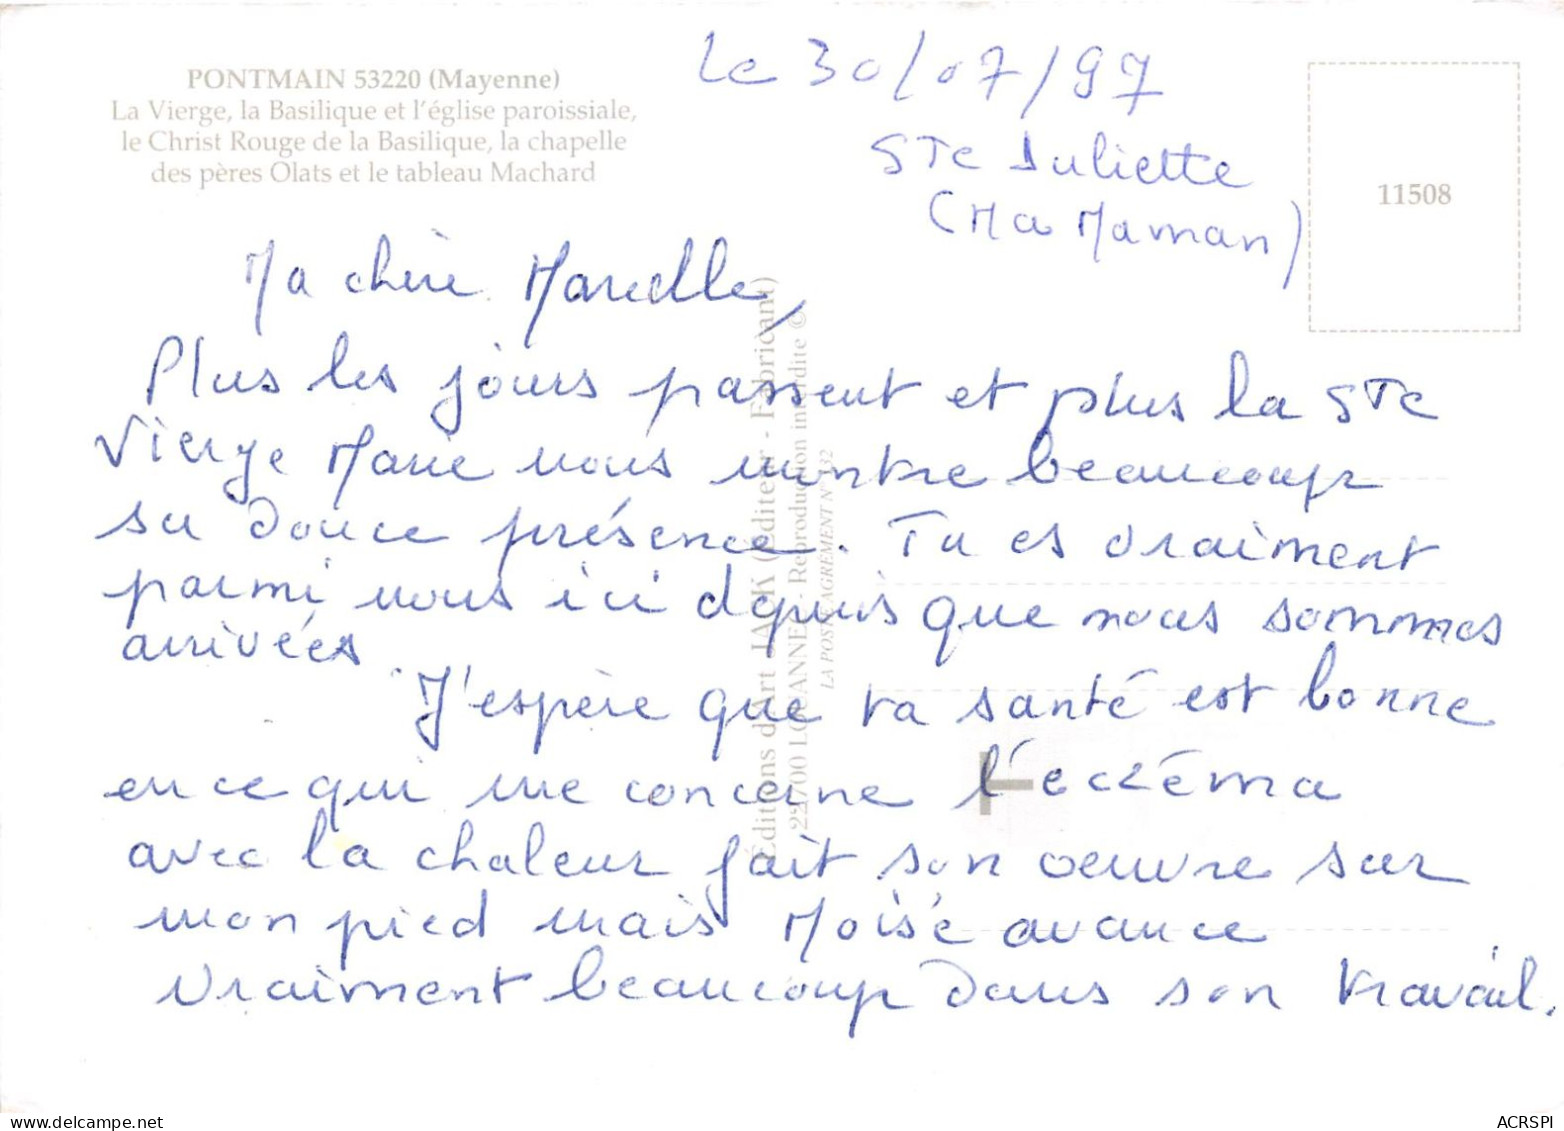 PONTMAIN 53220 (Mayenne)
La Vierge, la Basilique et l'église paroissiale,
le Christ Rouge de la Basilique, la chapelle
des pères Olats et le tableau Machard
11508
Le 30/07/97
STe Juliette
(Ma Maman)
Ma chère Marcelle,
Plus les jours passent et plus la STe
Vierge Marie nous montre beaucoup
sa douce présence. Tu es vraiment
parmi nous ici depuis que nous sommes
arrivées.
J'espère que ta santé est bonne
en ce qui me concerne l'eczéma
avec la chaleur fait son oeuvre sur
mon pied mais Moïse avance
vraiment beaucoup dans son travail.
Éditions d'Art JACK (Éditeur - Fabricant)
LOUANNEC - Reproduction interdite ©
LA POSTE AGREMENT N°
www.delcampe.net
ACRSPI